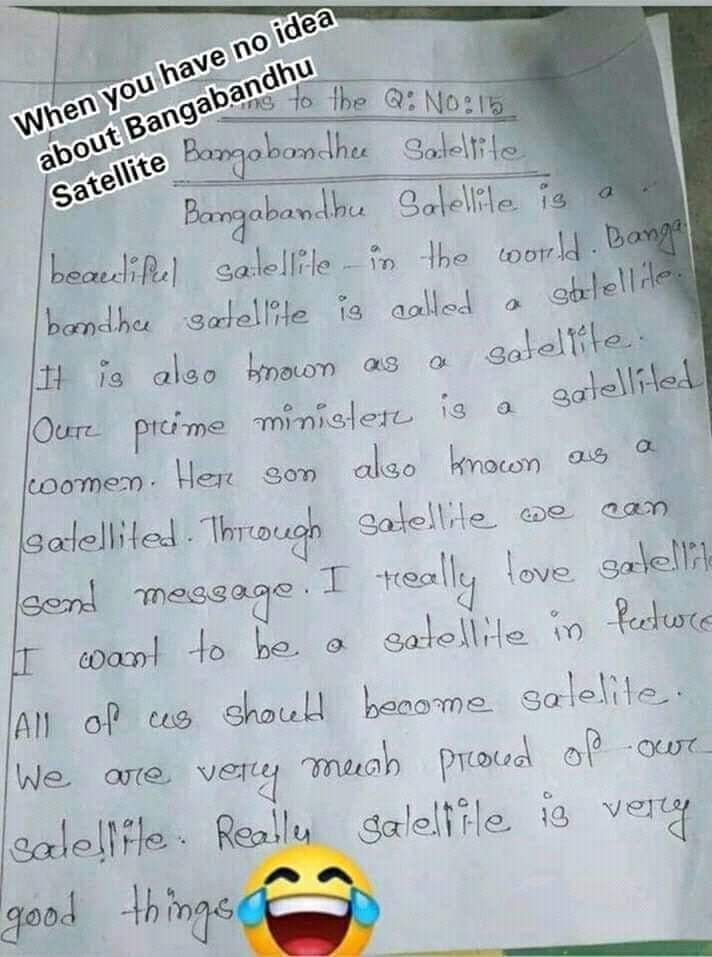 When you have no idea
about Bangabandhu
Satellite
ns to the Q: No:15
Bangabandhu Satellite
Bangabandhu Satellite is a
beautiful satellite in the world. Banga-
bandhu satellite is called a satellite.
It is also known as a satellite.
Our prime minister is a satellited
women. Her son also known as a
satellited. Through satellite we can
send message. I really love satellite
I want to be a satellite in future
All of us should become satelite.
We are very much proud of our
satellite. Really satellite is very
good things